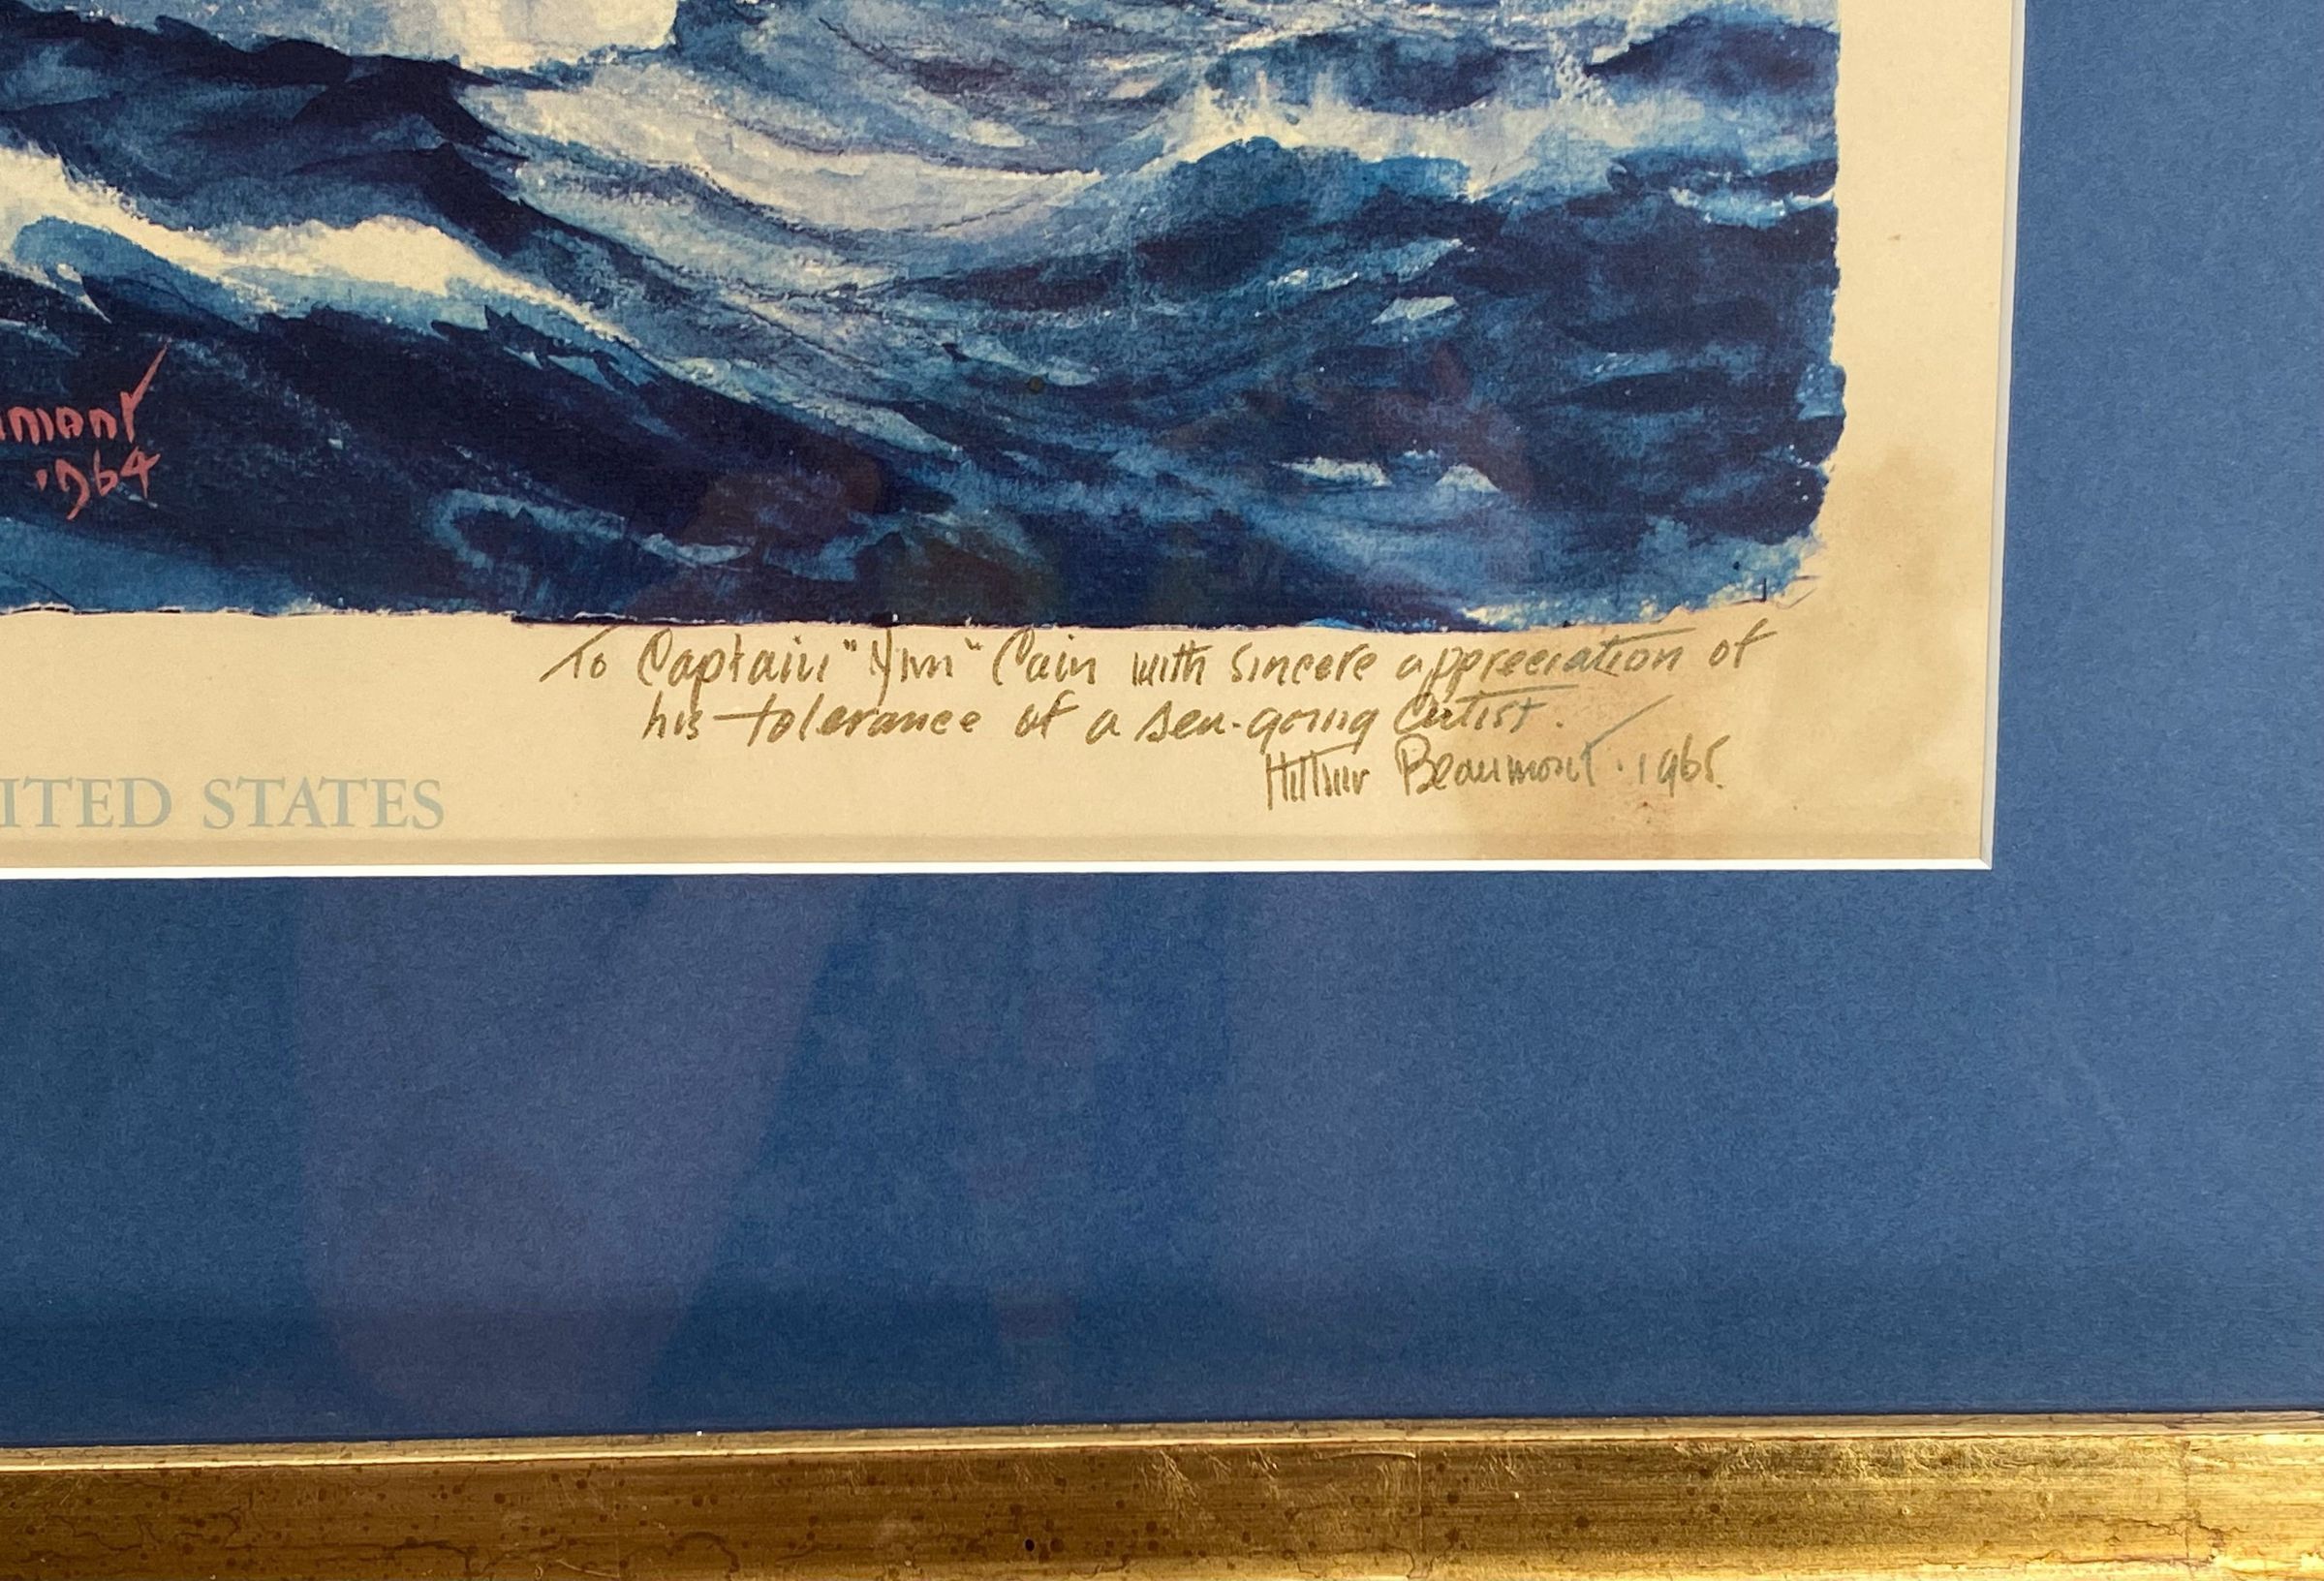 mont
1964
To Captain "Jim" Cain with sincere appreciation of
his tolerance of a sea-going Artist.
Arthur Beaumont. 1965.
ITED STATES